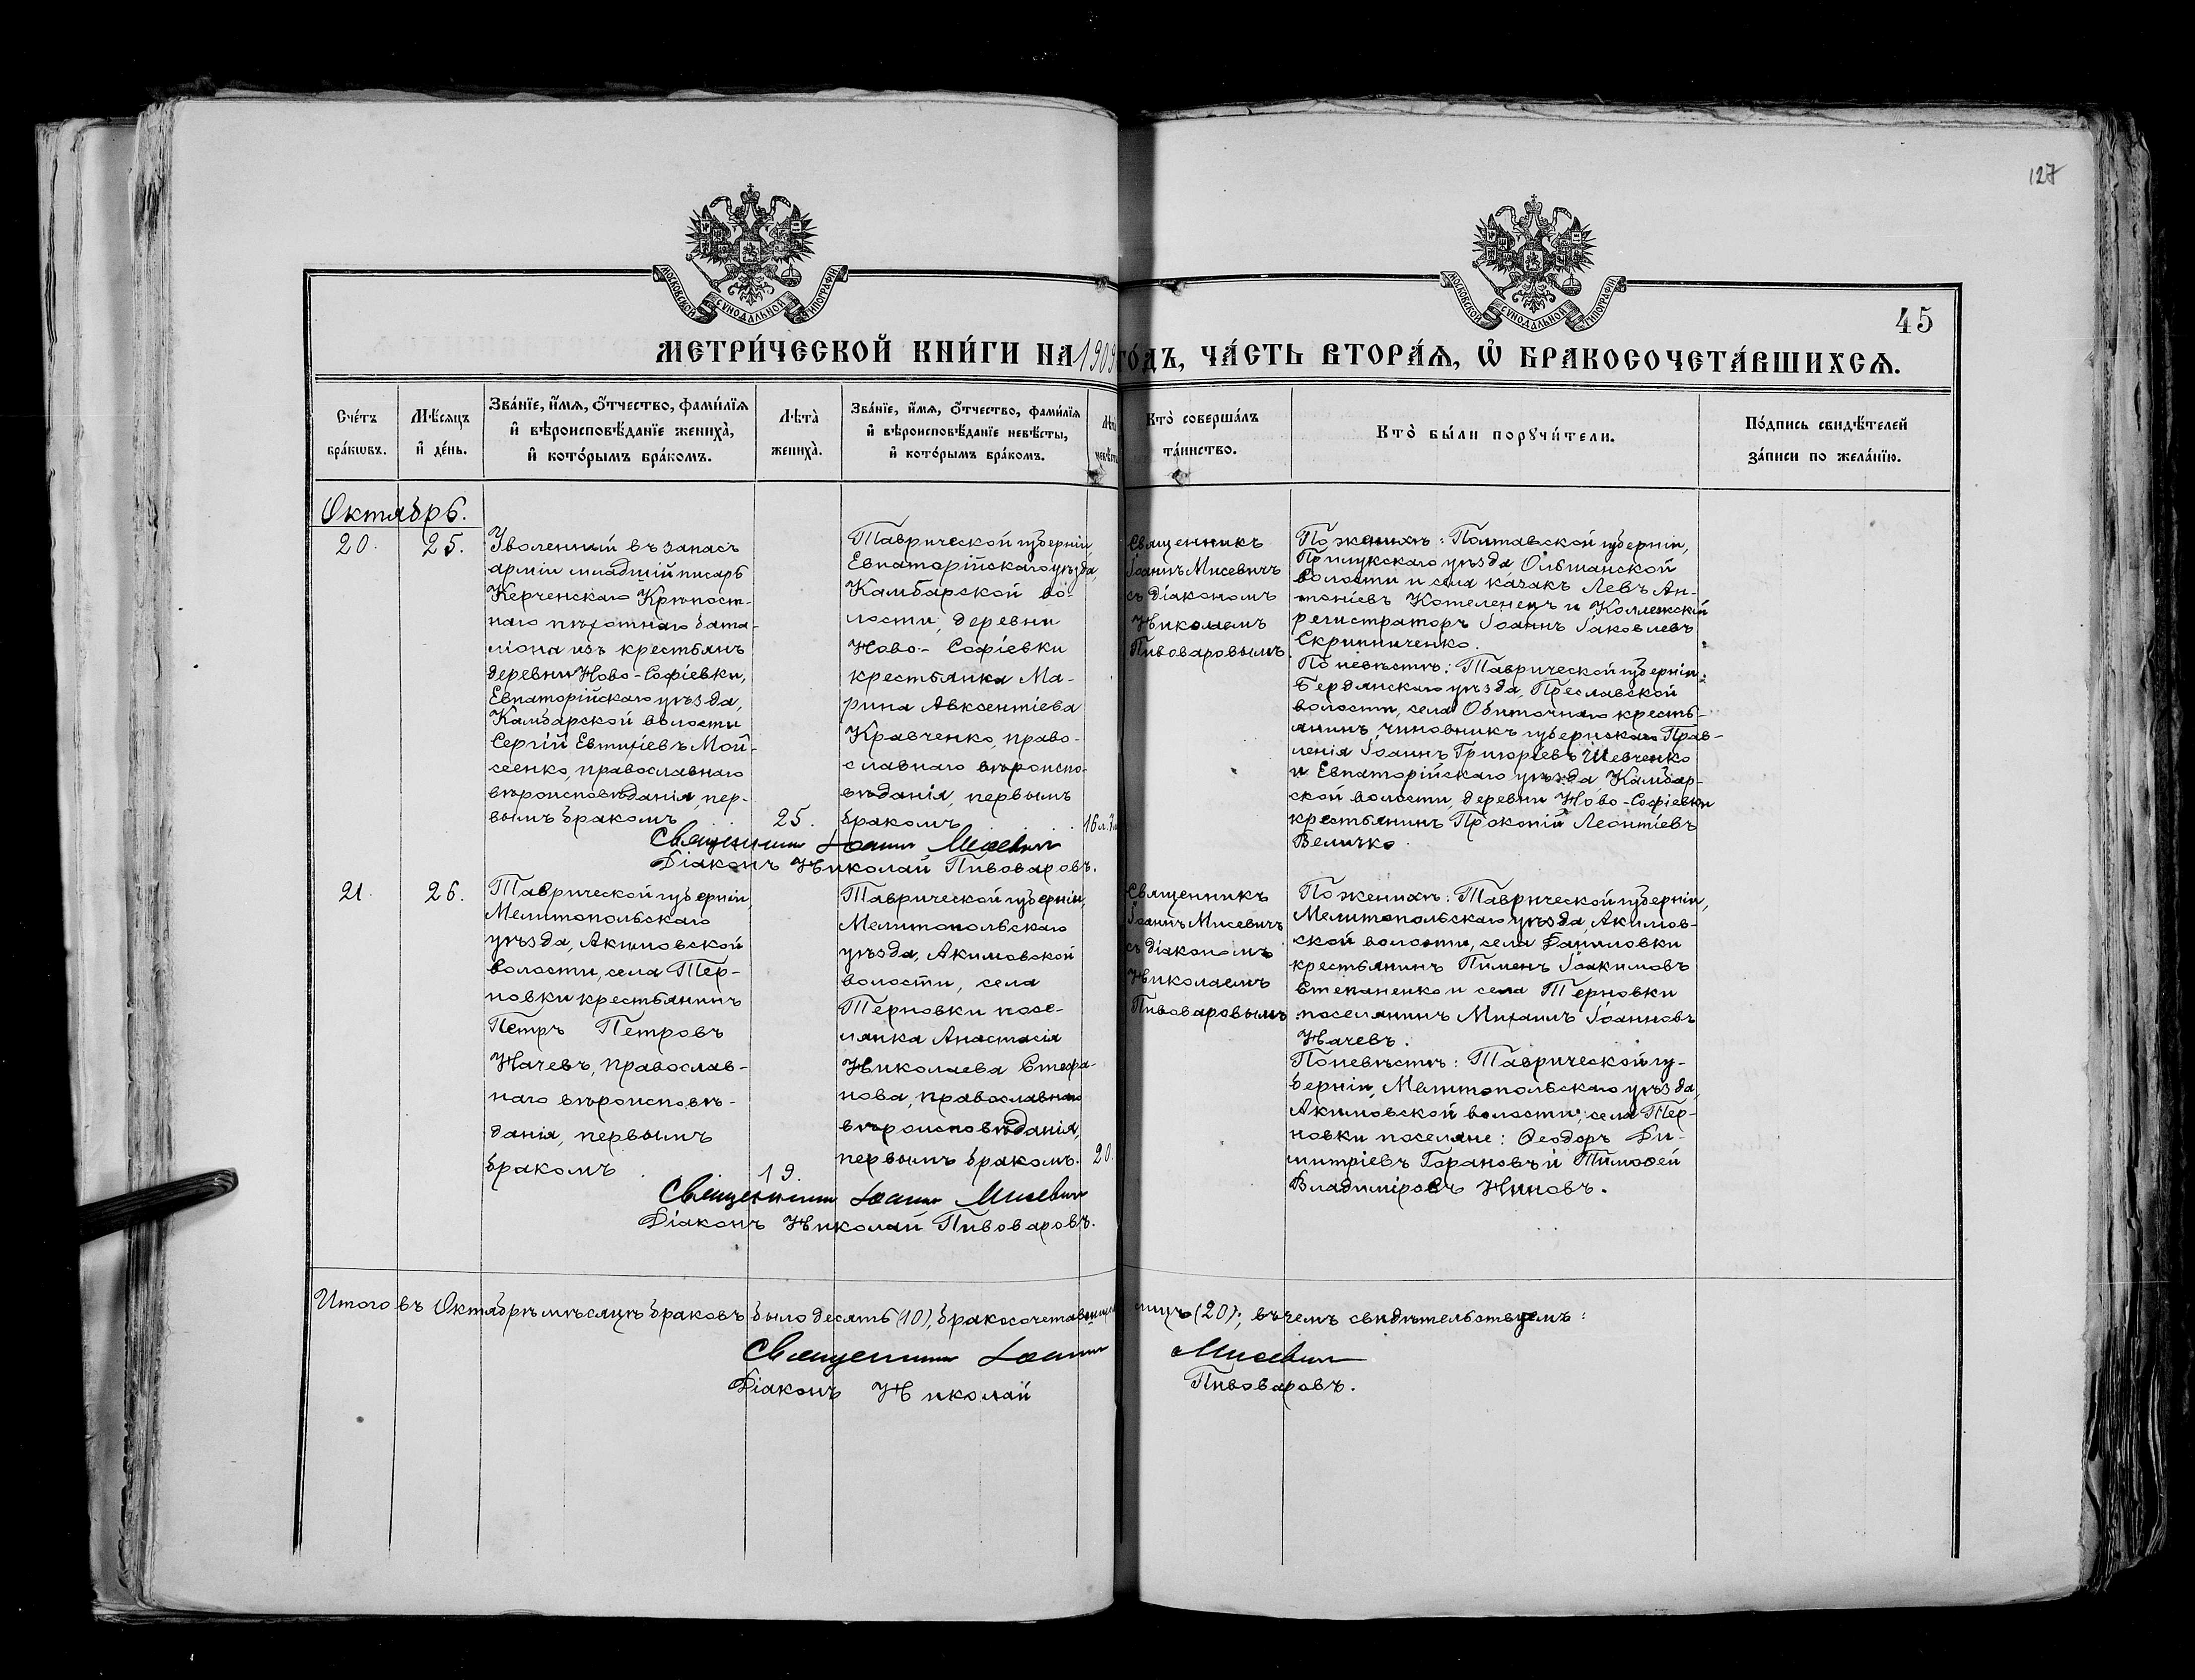 127
МОСКОВСКОЙ СѴНОДАЛЬНОЙ ТИПОГРАФІИ
МОСКОВСКОЙ СѴНОДАЛЬНОЙ ТИПОГРАФІИ
45
МЕТРИ́ЧЕСКОЙ КНИ́ГИ НА 1909 ГО́ДЪ, ЧА́СТЬ ВТОРА́Ѧ, Ѡ БРАКОСОЧЕТА́ВШИХСѦ.
Сче́тъ
бра́кѡвъ.
Мѣ́сѧцъ
и҆ де́нь.
Зва́нїе, и҆́мѧ, ѻ҆́тчество, фами́лїѧ
и҆ вѣроисповѣ́данїе жениха̀,
и҆ кото́рымъ бра́комъ.
Лѣта̀
жениха̀.
Зва́нїе, и҆́мѧ, ѻ҆́тчество, фами́лїѧ
и҆ вѣроисповѣ́данїе невѣ́сты,
и҆ кото́рымъ бра́комъ.
Кто̀ соверша́лъ
та́инство.
Кто̀ бы́ли порꙋчи́тели.
По́дпись свидѣ́телей
за́писи по жела́нїю.
Октябрь.
20.
25.
Уволенный въ запасъ
арміи младшій писарь
Керченскаго Крѣпост-
наго пѣхотнаго бата-
ліона изъ крестьянъ
деревни Ново-Софіевки,
Евпаторійскаго уѣзда,
Камбарской волости
Сергій Евтихіевъ Мой-
сеенко, православнаго
вѣроисповѣданія, пер-
вымъ бракомъ
25.
Таврической губерніи,
Евпаторійскаго уѣзда,
Камбарской во-
лости, деревни
Ново-Софіевки
крестьянка Ма-
рина Авксентіева
Кравченко, право-
славнаго вѣроиспо-
вѣданія, первымъ
бракомъ
16 л.
Священникъ
Іоаннъ Мисевичъ
съ діакономъ
Николаемъ
Пивоваровымъ.
По женихѣ: Полтавской губерніи,
Прилукскаго уѣзда Ольшанской
волости и села казакъ Левъ Ан-
тоніевъ Котеленецъ и Коллежскій
регистраторъ Іоаннъ Іаковлевъ
Скрипниченко.
По невѣстѣ: Таврической губерніи
Бердянскаго уѣзда, Преславской
волости, села Обиточнаго кресть-
янинъ, чиновникъ губернскаго Прав-
ленія Іоаннъ Григоріевъ Шевченко
и Евпаторійскаго уѣзда Камбар-
ской волости, деревни Ново-Софіевки
крестьянинъ Прокопій Леонтіевъ
Величко.
Священникъ Іоаннъ Мисевичъ
Діаконъ Николай Пивоваровъ.
21.
26.
Таврической губерніи,
Мелитопольскаго
уѣзда, Акимовской
волости, села Тер-
новки крестьянинъ
Петръ Петровъ
Начевъ, православ-
наго вѣроисповѣ-
данія, первымъ
бракомъ
19.
Таврической губерніи,
Мелитопольскаго
уѣзда, Акимовской
волости, села
Терновки посе-
лянка Анастасія
Николаева Стефа-
нова, православнаго
вѣроисповѣданія,
первымъ бракомъ.
20.
Священникъ
Іоаннъ Мисевичъ
съ діакономъ
Николаемъ
Пивоваровымъ
По женихѣ: Таврической губерніи,
Мелитопольскаго уѣзда, Акимов-
ской волости, села Даниловки
крестьянинъ Пименъ Іоакимовъ
Степаненко и села Терновки
поселянинъ Михаилъ Іоанновъ
Начевъ.
По невѣстѣ: Таврической гу-
берніи, Мелитопольскаго уѣзда,
Акимовской волости, села Тер-
новки поселяне: Ѳеодоръ Ди-
митріевъ Горановъ и Тимоѳей
Владиміровъ Ниновъ.
Священникъ Іоаннъ Мисевичъ
Діаконъ Николай Пивоваровъ.
Итого въ Октябрѣ мѣсяцѣ браковъ было десять (10), бракосочетавшихся лицъ (20); въ чемъ свидѣтельствуемъ:
Священникъ Іоаннъ Мисевичъ
Діаконъ Николай Пивоваровъ.